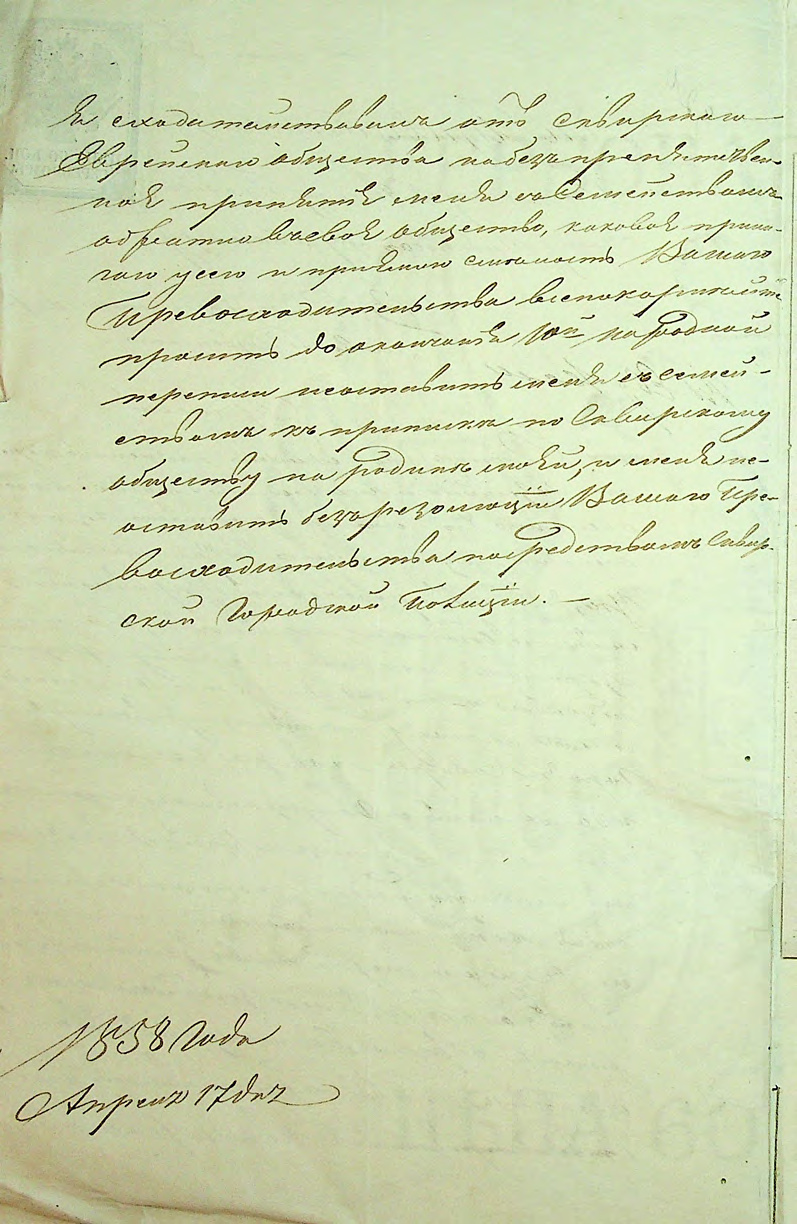 я сходатайствовалъ отъ Сквирского
Еврейскаго общества на безпрепятствен-
ное принятіе меня съ Семействомъ
обратно въ свое общество, каковое прила-
гаю у сего и пріемлю смѣлость Вашего
Превосходительства всепокорнѣйше
просить до окончанія 10й народной
переписи неоставить меня съ семей-
ствомъ къ припискѣ по Сквирскому
обществу на родинѣ моей, и меня не-
оставить безъ резолюціи Вашего Пре-
восходительства посредствомъ Сквир-
ской Городской Полиціи. —
1858 Года
Апреля 17 дня